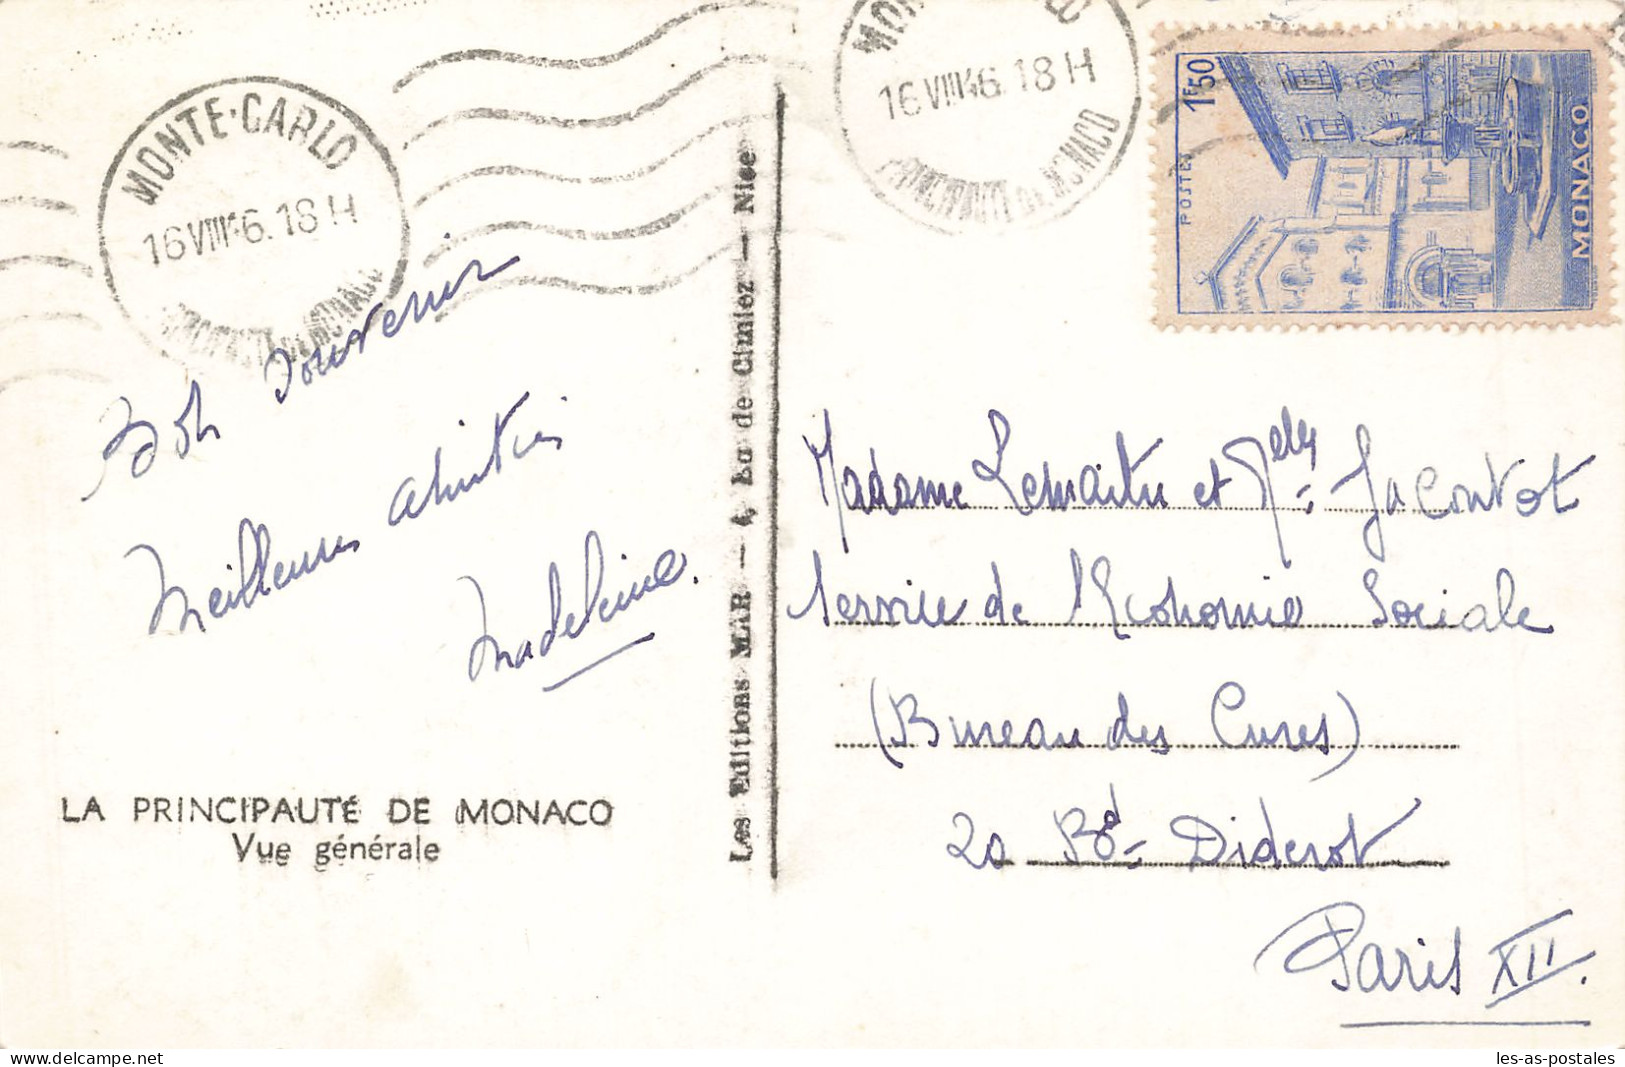 MONTE-CARLO
16 VIII 46. 18 H
PRINCIPAUTÉ DE MONACO
16 VIII 46. 18 H
PRINCIPAUTÉ DE MONACO
1F50
POSTES
MONACO
Bon souvenir
Meilleures amitiés
Madeleine.
LA PRINCIPAUTÉ DE MONACO
Vue générale
Les Editions MAR — 4, Bd de Cimiez — Nice
Madame Lemaitre et Melles Jacontot
Service de l'Economie Sociale
(Bureau des Cures)
20 Bd Diderot
Paris XII.
les-as-postales
http://www.delcampe.net